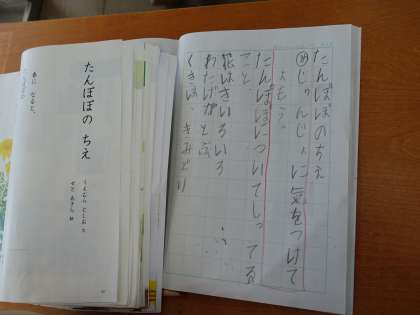 たんぽぽのちえ
めじゅんじょに気をつけて
よもう。
たんぽぽについてしってる
こと
花はきいろいろ
わたげがとぶ
くきは、きみどり
たんぽぽの ちえ
うえむら としお 文
春に なると、